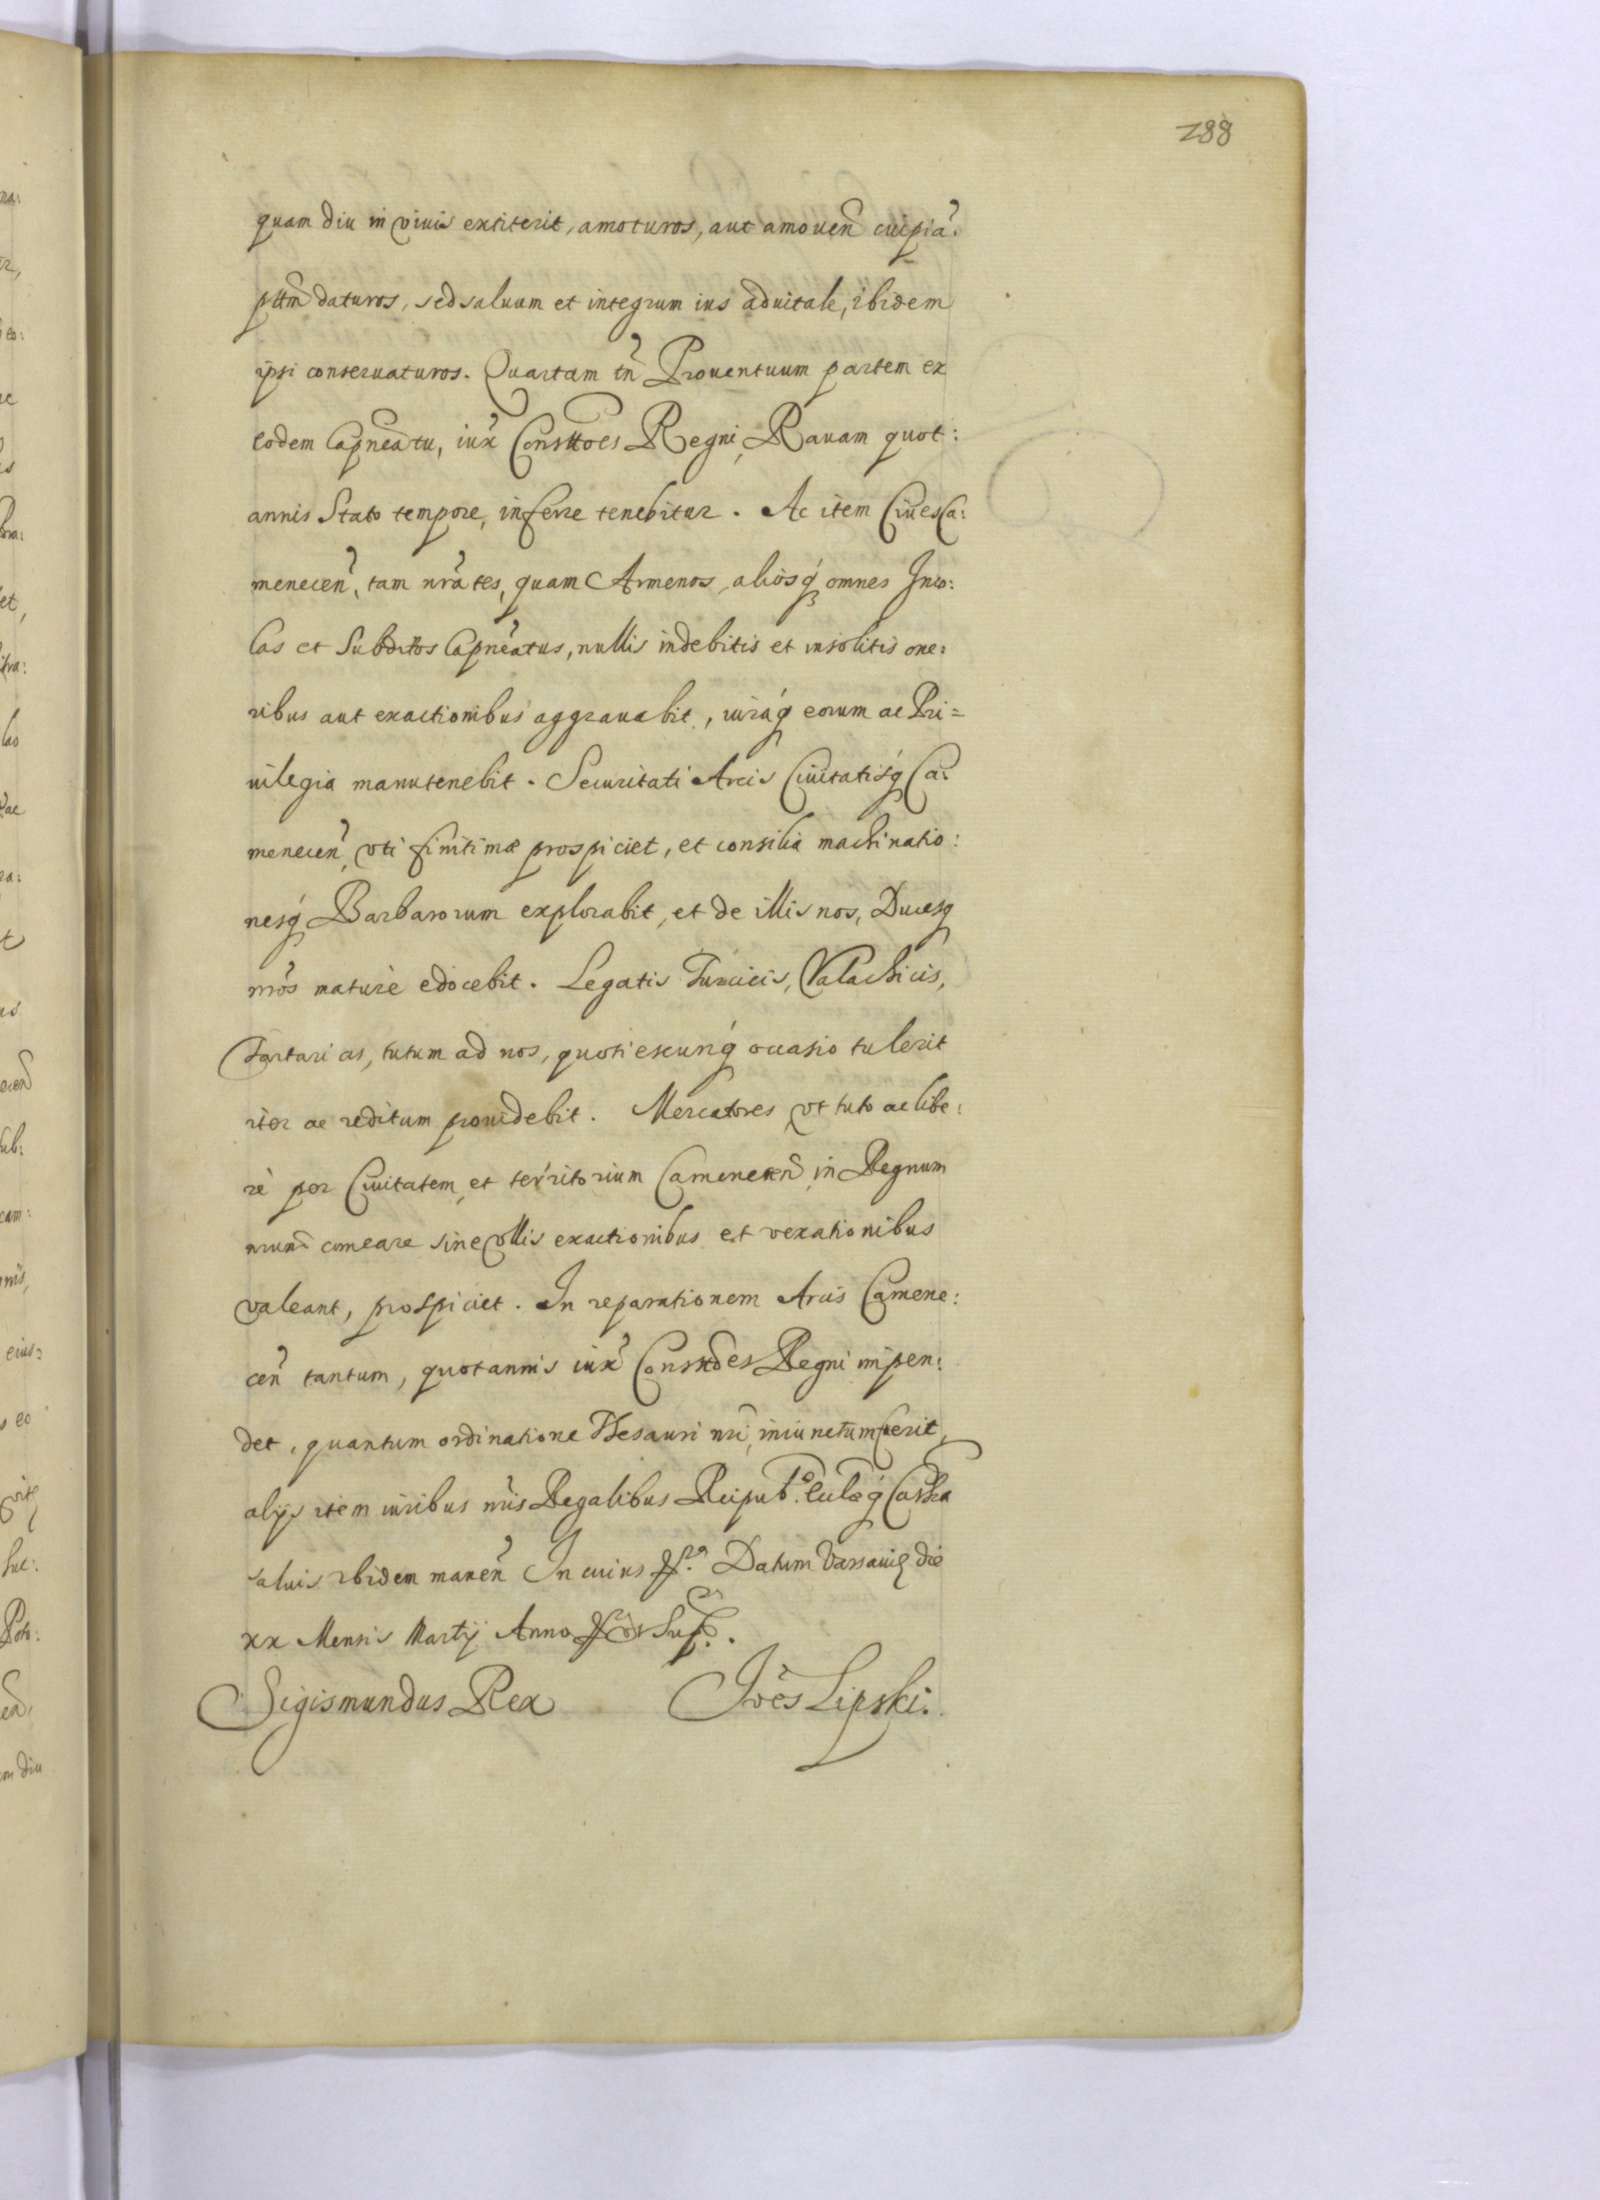 288
quam diu in viuis extiterit, amoturos, aut amouen̄ cuipiā:
pttm̄ daturos, sed saluum et integrum ius aduitale, ibidem
ipsi conseruaturos. Quartam tn̄ Prouentuum partem ex
eodem Capneatu, iux̄ Consttoēs Regni, Rauam quot:
annis Stato tempore, inferre tenebitur. Ac item Ciues Ca:
menecen̄, tam nrātes, quam Armenos, aliosq́ omnes Inco:
las et Subditos Capneatus, nullis indebitis et insolitis one:
ribus aut exactionibus aggrauabit, iuraq́ eorum ac Pri=
uilegia manutenebit. Securitati Arcis Ciuitatisq́ Ca:
menecen̄, vti finitimæ prospiciet, et consilia machinatio:
nesq́ Barbarorum explorabit, et de illis nos, Ducesq
nrōs maturè edocebit. Legatis Turcicis, Valachicis,
Tartaricis, tutum ad nos, quotiescunq́ occasio tulerit
iter ac reditum prouidebit. Mercatores vt tuto ac libe:
rè per Ciuitatem, et territorium Camenecen̄, in Regnum
nrum̄ comeare sine vllis exactionibus et vexationibus
valeant, prospiciet. In reparationem Arcis Camene:
cen̄ tantum, quotannis iux̄ Consttoēs Regni impen:
det, quantum ordinatione Thesauri nrī, iniunctum fuerit,
alijs item iuribus nrīs Regalibus Reipub. Ecclæq́ Cathca
saluis ibidem manen̄ In cuius Datum Varsauię die
xx Mensis Martij Anno Sup.
Sigismundus Rex Joēs Lipski.